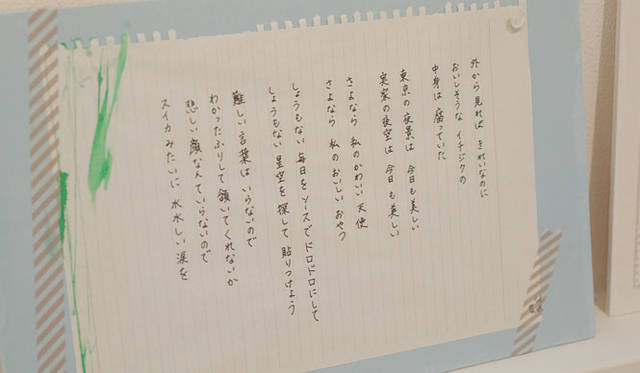 外から見れば きれいなのに
おいしそうな イチジクの
中身は 腐っていた
東京の夜景は 今日も美しい
実家の夜空は 今日も美しい
さよなら 私のかわいい天使
さよなら 私のおいしいおやつ
しょうもない 毎日をソースでドロドロにして
しょうもない 星空を探して 貼りつけよう
難しい言葉は いらないので
わかったふりして 頷いてくれないか
悲しい顔なんていらないので
スイカみたいに 水水しい涙を